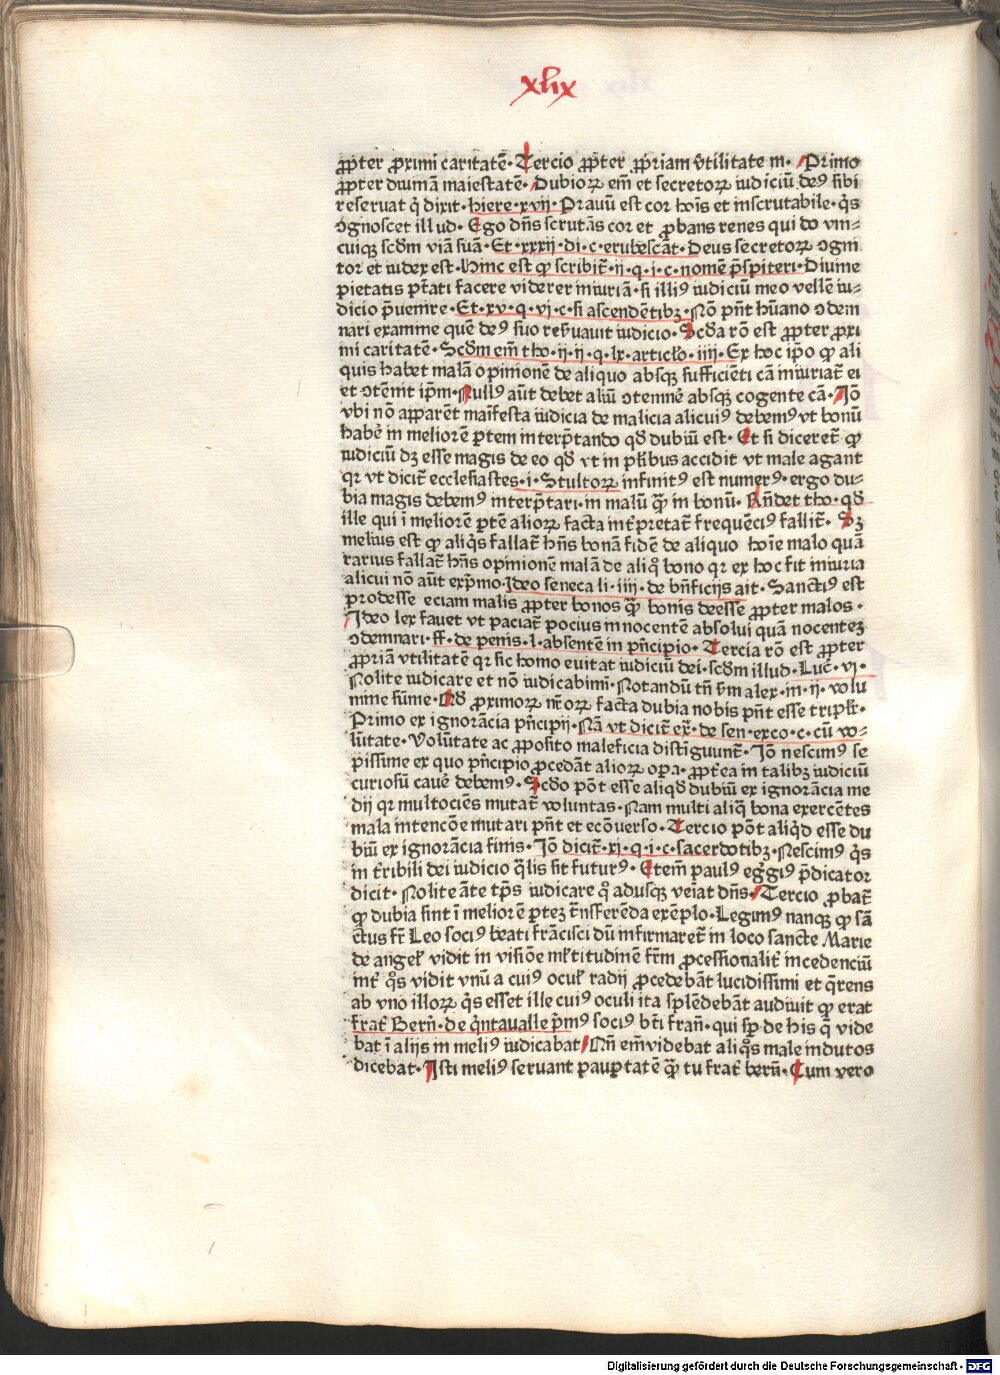 xlix
ꝓpter ꝓximi caritatē· Tercio ꝓpter ꝓpriam vtilitatem· Primo
ꝓpter diuinā maiestatē· Dubioꝝ em̄ et secretoꝝ iudiciū deꝰ sibi
reseruat qͥ dixit· hiere·xvij· Prauū est cor hoīs et inscrutabile· qͥs
ꝯgnoscet illud· Ego dn̄s scrutās cor et ꝓbans renes qui do vni⸗
cuiqꝫ scd̄m viā suā· Et·xxxij·di·c·erubescāt· Deus secretoꝝ ꝯgni
tor et iudex est· Hinc est ꝙ scribit̄·ij·q·i·c·nomē p̄spiteri· Diuine
pietatis ptāti facere viderer iniuriā· si illiꝰ iudiciū meo vellē iu⸗
dicio p̄uenire· Et·xv·q·vi·c·si ascendētibꝫ· Nō pn̄t hūano ꝯdem
nari examine quē deꝰ suo reẜuauit iudicio· Scd̄a rō est ꝓpter ꝓxi
mi caritatē· Scd̄m em̄ tho·ij·ij·q·lx·articlo·iiij· Ex hoc ip̄o ꝙ ali
quis habet malā opinionē de aliquo absqꝫ sufficiēti cā iniuriat̄ ei
et ꝯtēnit ip̄m· Nullꝰ aūt debet aliū ꝯtemnē absqꝫ cogente cā· Iō
vbi nō apparēt māifesta iudicia de malicia alicuiꝰ debemꝰ vt bonū
habē in meliorē ꝑtem interp̄tando qd̄ dubiū est· Et si diceret̄ ꝙ
iudiciū dꝫ esse magis de eo qd̄ vt in pl̄ibus accidit vt male agant
qꝛ vt dicit̄ ecclesiastes·i· Stultoꝝ infinitꝰ est numerꝰ· ergo du⸗
bia magis debemꝰ interp̄tari· in malū qꝫ̄ in bonū· Rn̄det tho· qd̄
ille qui ī meliorē ꝑtē alioꝝ facta int̄pretat̄ frequēciꝰ fallit̄· Sꝫ
melius est ꝙ aliqͥs fallat̄ hn̄s bonā fidē de aliquo hoīe malo quā
rarius fallat̄ hn̄s opinionē malā de aliqͦ bono qꝛ ex hoc fit iniuria
alicui nō aūt ex pͥmo· Ideo seneca li·iiij·de bn̄ficijs ait· Sanctiꝰ est
prodesse eciam malis ꝓpter bonos qꝫ̄ bonis deesse ꝓpter malos·
Ideo lex fauet vt paciat̄ pocius innocentē absolui quā nocentez
ꝯdemnari· ff·de penis·l·absentē in pͥncipio· Tercia rō est ꝓpter
ꝓpriā vtilitatē qꝛ sic homo euitat iudiciū dei· scd̄m illud· Luc̄·vi·
Nolite iudicare et nō iudicabimī· Notandū tn̄ ẜm alex·in·ij·volu
mine sūme· Qd̄ ꝓximoꝝ nr̄oꝝ facta dubia nobis pn̄t esse tripl̄r·
Primo ex ignorācia pͥncipij· Nā vt dicit̄ ex̄·de sen·exco·c·cū vo⸗
lūtate· Volūtate ac ꝓposito maleficia distīguunt̄· Iō nescimꝰ se
pissime ex quo pͥncipio ꝓcedāt alioꝝ oꝑa· ꝓpt̄ea in talibꝫ iudiciū
curiosū cauē debemꝰ· Scd̄o pōt esse aliqd̄ dubiū ex ignorācia me
dij qꝛ multociēs mutat̄ voluntas· Nam multi aliqͣ bona exercētes
mala intencōe mutari pn̄t et ecōuerso· Tercio pōt aliqͥd esse du
biū ex ignorācia finis· Iō dicit̄·xi·q·i·c·sacerdotibꝫ· Nescimꝰ qͥs
in t̄ribili dei iudicio qͣlis sit futurꝰ· Etem̄ paulꝰ egͣgiꝰ p̄dicator
dicit· Nolite āte tp̄s iudicare qͦ adusqꝫ veīat dn̄s· Tercio ꝓbat̄
ꝙ dubia sint ī meliorē ꝑtez t̄nsferēda exēplo· Legimꝰ nanqꝫ ꝙ sā
ctus fr̄ Leo sociꝰ beati frācisci dū infirmaret̄ in loco sancte Marie
de angel̄ vidit in visiōe ml̄titudinē fr̄m ꝓcessionalit̄ incedenciū
int̄ qͦs vidit vnū a cuiꝰ ocul̄ radij ꝓcedebāt lucidissimi et qͣrens
ab vno illoꝝ qͥs esset ille cuiꝰ oculi ita splēdebāt audiuit ꝙ erat
frat̄ Bern̄·de qͥntaualle pͥmꝰ sociꝰ bt̄i fran̄·qui sp̄ de his qͣ vide
bat ī alijs in meliꝰ iudicabat Nn̄ em̄videbat aliqͦs male indutos
dicebat· Isti meliꝰ seruant pauꝑtatē qꝫ̄ tu frat̄ bern̄· Cum vero
Digitalisierung gefördert durch die Deutsche Forschungsgemeinschaft · DFG